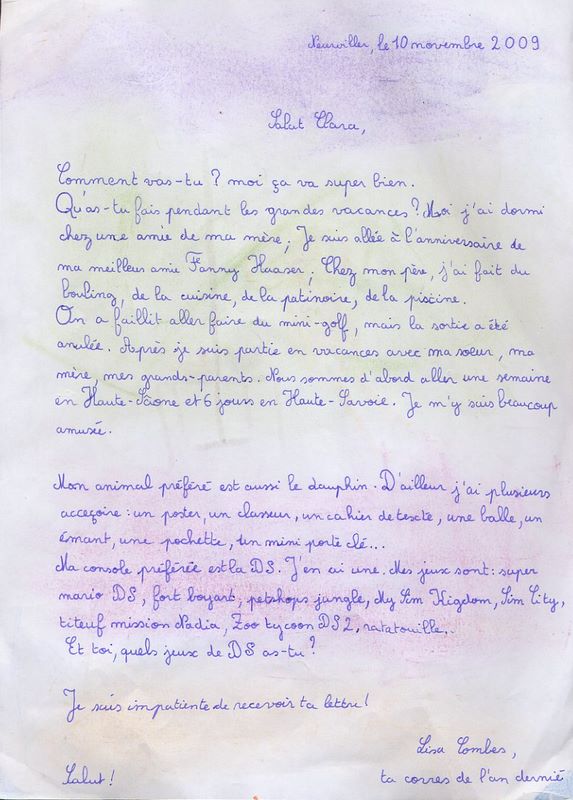 Neuwiller, le 10 novembre 2009
Salut Clara,
Comment vas-tu ? moi ça va super bien.
Qu'as-tu fais pendant les grandes vacances ? Moi j'ai dormi
chez une amie de ma mère ; Je suis allée à l'anniversaire de
ma meilleur amie Fanny Haaser ; Chez mon père, j'ai fait du
bouling, de la cuisine, de la patinoire, de la piscine.
On a faillit aller faire du mini-golf, mais la sortie a été
anulée. Après je suis partie en vacances avec ma soeur, ma
mère, mes grands-parents. Nous sommes d'abord aller une semaine
en Haute-Saône et 6 jours en Haute-Savoie. Je m'y suis beaucoup
amusée.
Mon animal préféré est aussi le dauphin. D'ailleur j'ai plusieurs
acceçoire : un poster, un classeur, un cahier de texte, une balle, un
émant, une pochette, un mini porte clé...
Ma console préférée est la DS. J'en ai une. Mes jeux sont : super
mario DS, fort boyart, petshops jungle, My Sim Kigdom, Sim City,
titeuf mission Nadia, Zoo tycoon DS 2, ratatouille..
Et toi, quels jeux de DS as-tu ?
Je suis impatiente de recevoir ta lettre !
Lisa Combes,
Salut ! ta corres de l'an dernié